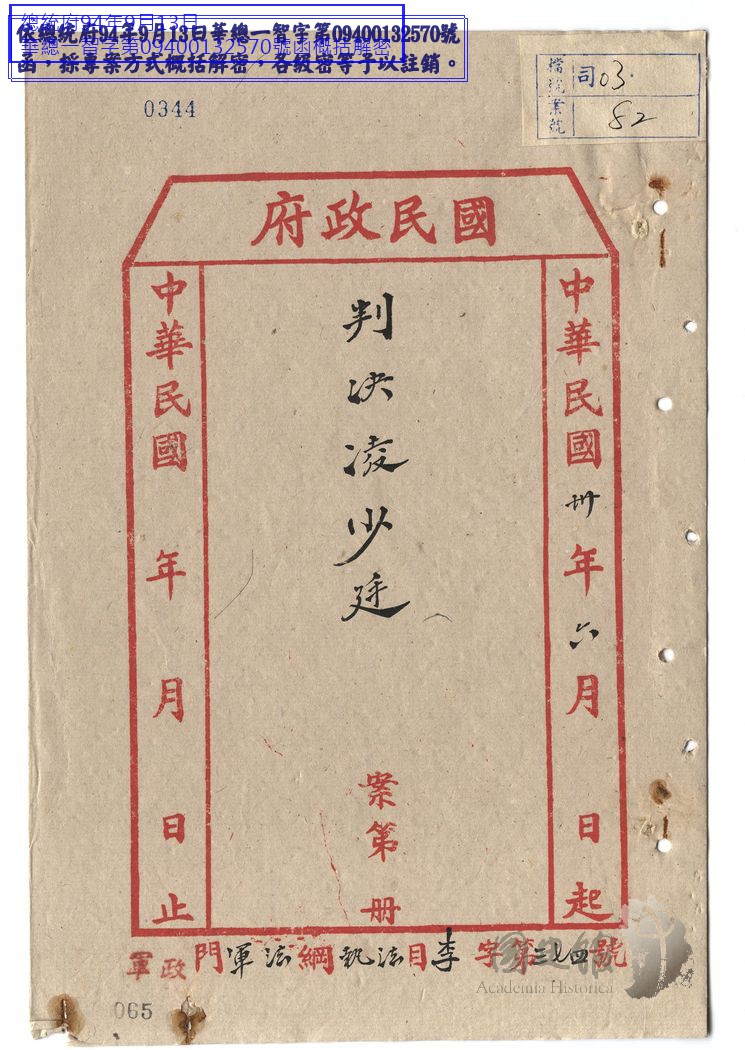 總統府94年9月13日
華總一智字第09400132570號函概括解密
依總統府94年9月13日華總一智字第09400132570號
函，採專案方式概括解密，各級密等予以註銷。
0344
檔號 司03.
案號 82
國民政府
中華民國卅年六月 日起
判決凌少廷
案第 册
中華民國 年 月 日止
軍政門軍法綱執法目李字第三七四號
國史館
Academia Historica
065